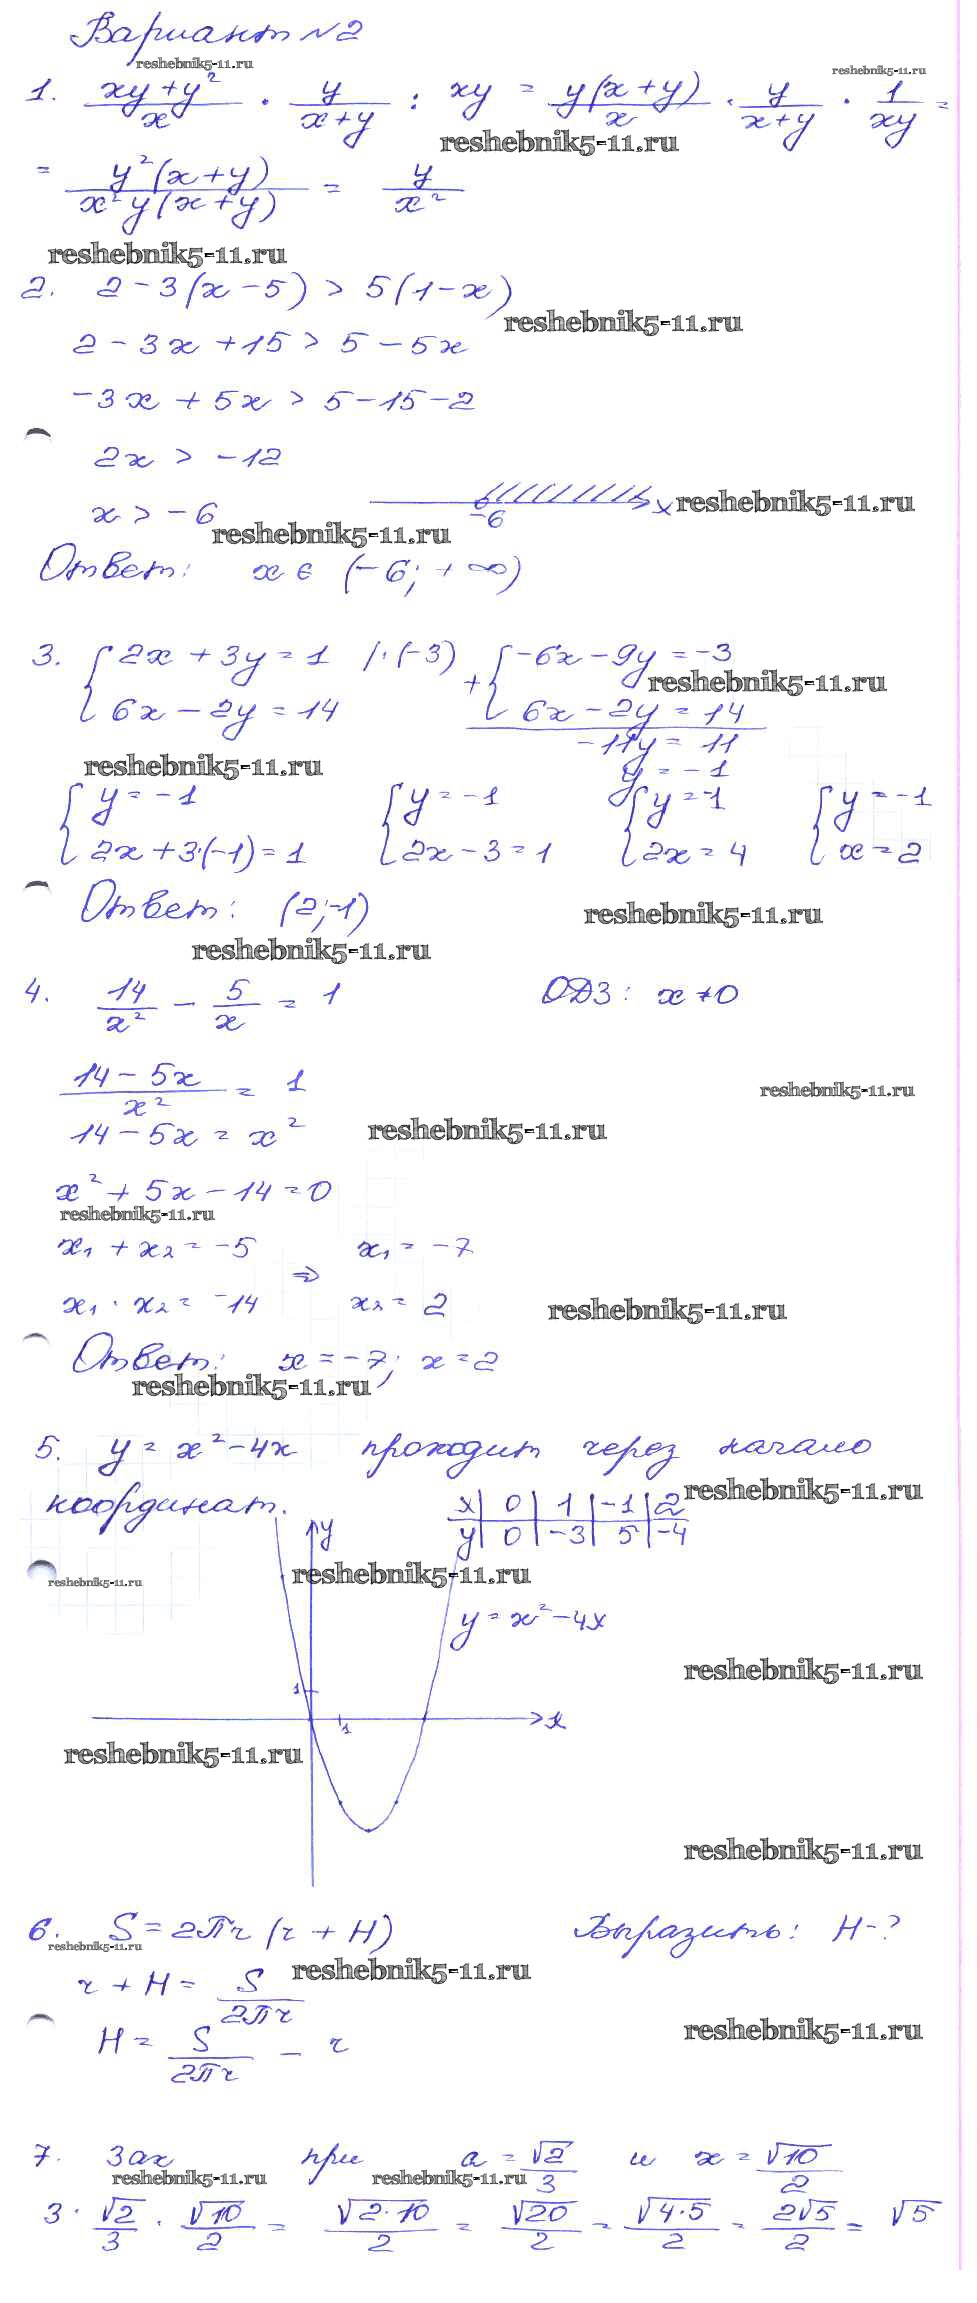 Вариант №2
reshebnik5-11.ru
reshebnik5-11.ru
1. (xy + y²)/x · y/(x+y) : xy = y(x+y)/x · y/(x+y) · 1/(xy) =
reshebnik5-11.ru
= y²(x+y)/(x²y(x+y)) = y/x²
reshebnik5-11.ru
2. 2 - 3(x - 5) > 5(1 - x)
reshebnik5-11.ru
2 - 3x + 15 > 5 - 5x
-3x + 5x > 5 - 15 - 2
2x > -12
x > -6
-6 x
reshebnik5-11.ru
reshebnik5-11.ru
Ответ: x ∈ (-6; +∞)
3. { 2x + 3y = 1 |·(-3) + { -6x - 9y = -3
reshebnik5-11.ru
6x - 2y = 14 6x - 2y = 14
-11y = 11
reshebnik5-11.ru
y = -1
{ y = -1 { y = -1 { y = -1 { y = -1
2x + 3·(-1) = 1 2x - 3 = 1 2x = 4 x = 2
Ответ: (2; -1)
reshebnik5-11.ru
reshebnik5-11.ru
4. 14/x² - 5/x = 1 ОДЗ: x ≠ 0
(14 - 5x)/x² = 1
reshebnik5-11.ru
14 - 5x = x²
reshebnik5-11.ru
x² + 5x - 14 = 0
reshebnik5-11.ru
x₁ + x₂ = -5 x₁ = -7
⇒
x₁ · x₂ = -14 x₂ = 2
reshebnik5-11.ru
Ответ: x = -7; x = 2
reshebnik5-11.ru
5. y = x² - 4x проходит через начало
reshebnik5-11.ru
координат.
x | 0 | 1 | -1 | 2
y | 0 | -3 | 5 | -4
y
reshebnik5-11.ru
reshebnik5-11.ru
y = x² - 4x
reshebnik5-11.ru
1
1
x
reshebnik5-11.ru
reshebnik5-11.ru
6. S = 2πr (r + H) Выразить: H - ?
reshebnik5-11.ru
reshebnik5-11.ru
r + H = S/(2πr)
reshebnik5-11.ru
H = S/(2πr) - r
7. 3ax при a = √2/3 и x = √10/2
reshebnik5-11.ru
reshebnik5-11.ru
3 · √2/3 · √10/2 = √(2·10)/2 = √20/2 = √(4·5)/2 = 2√5/2 = √5